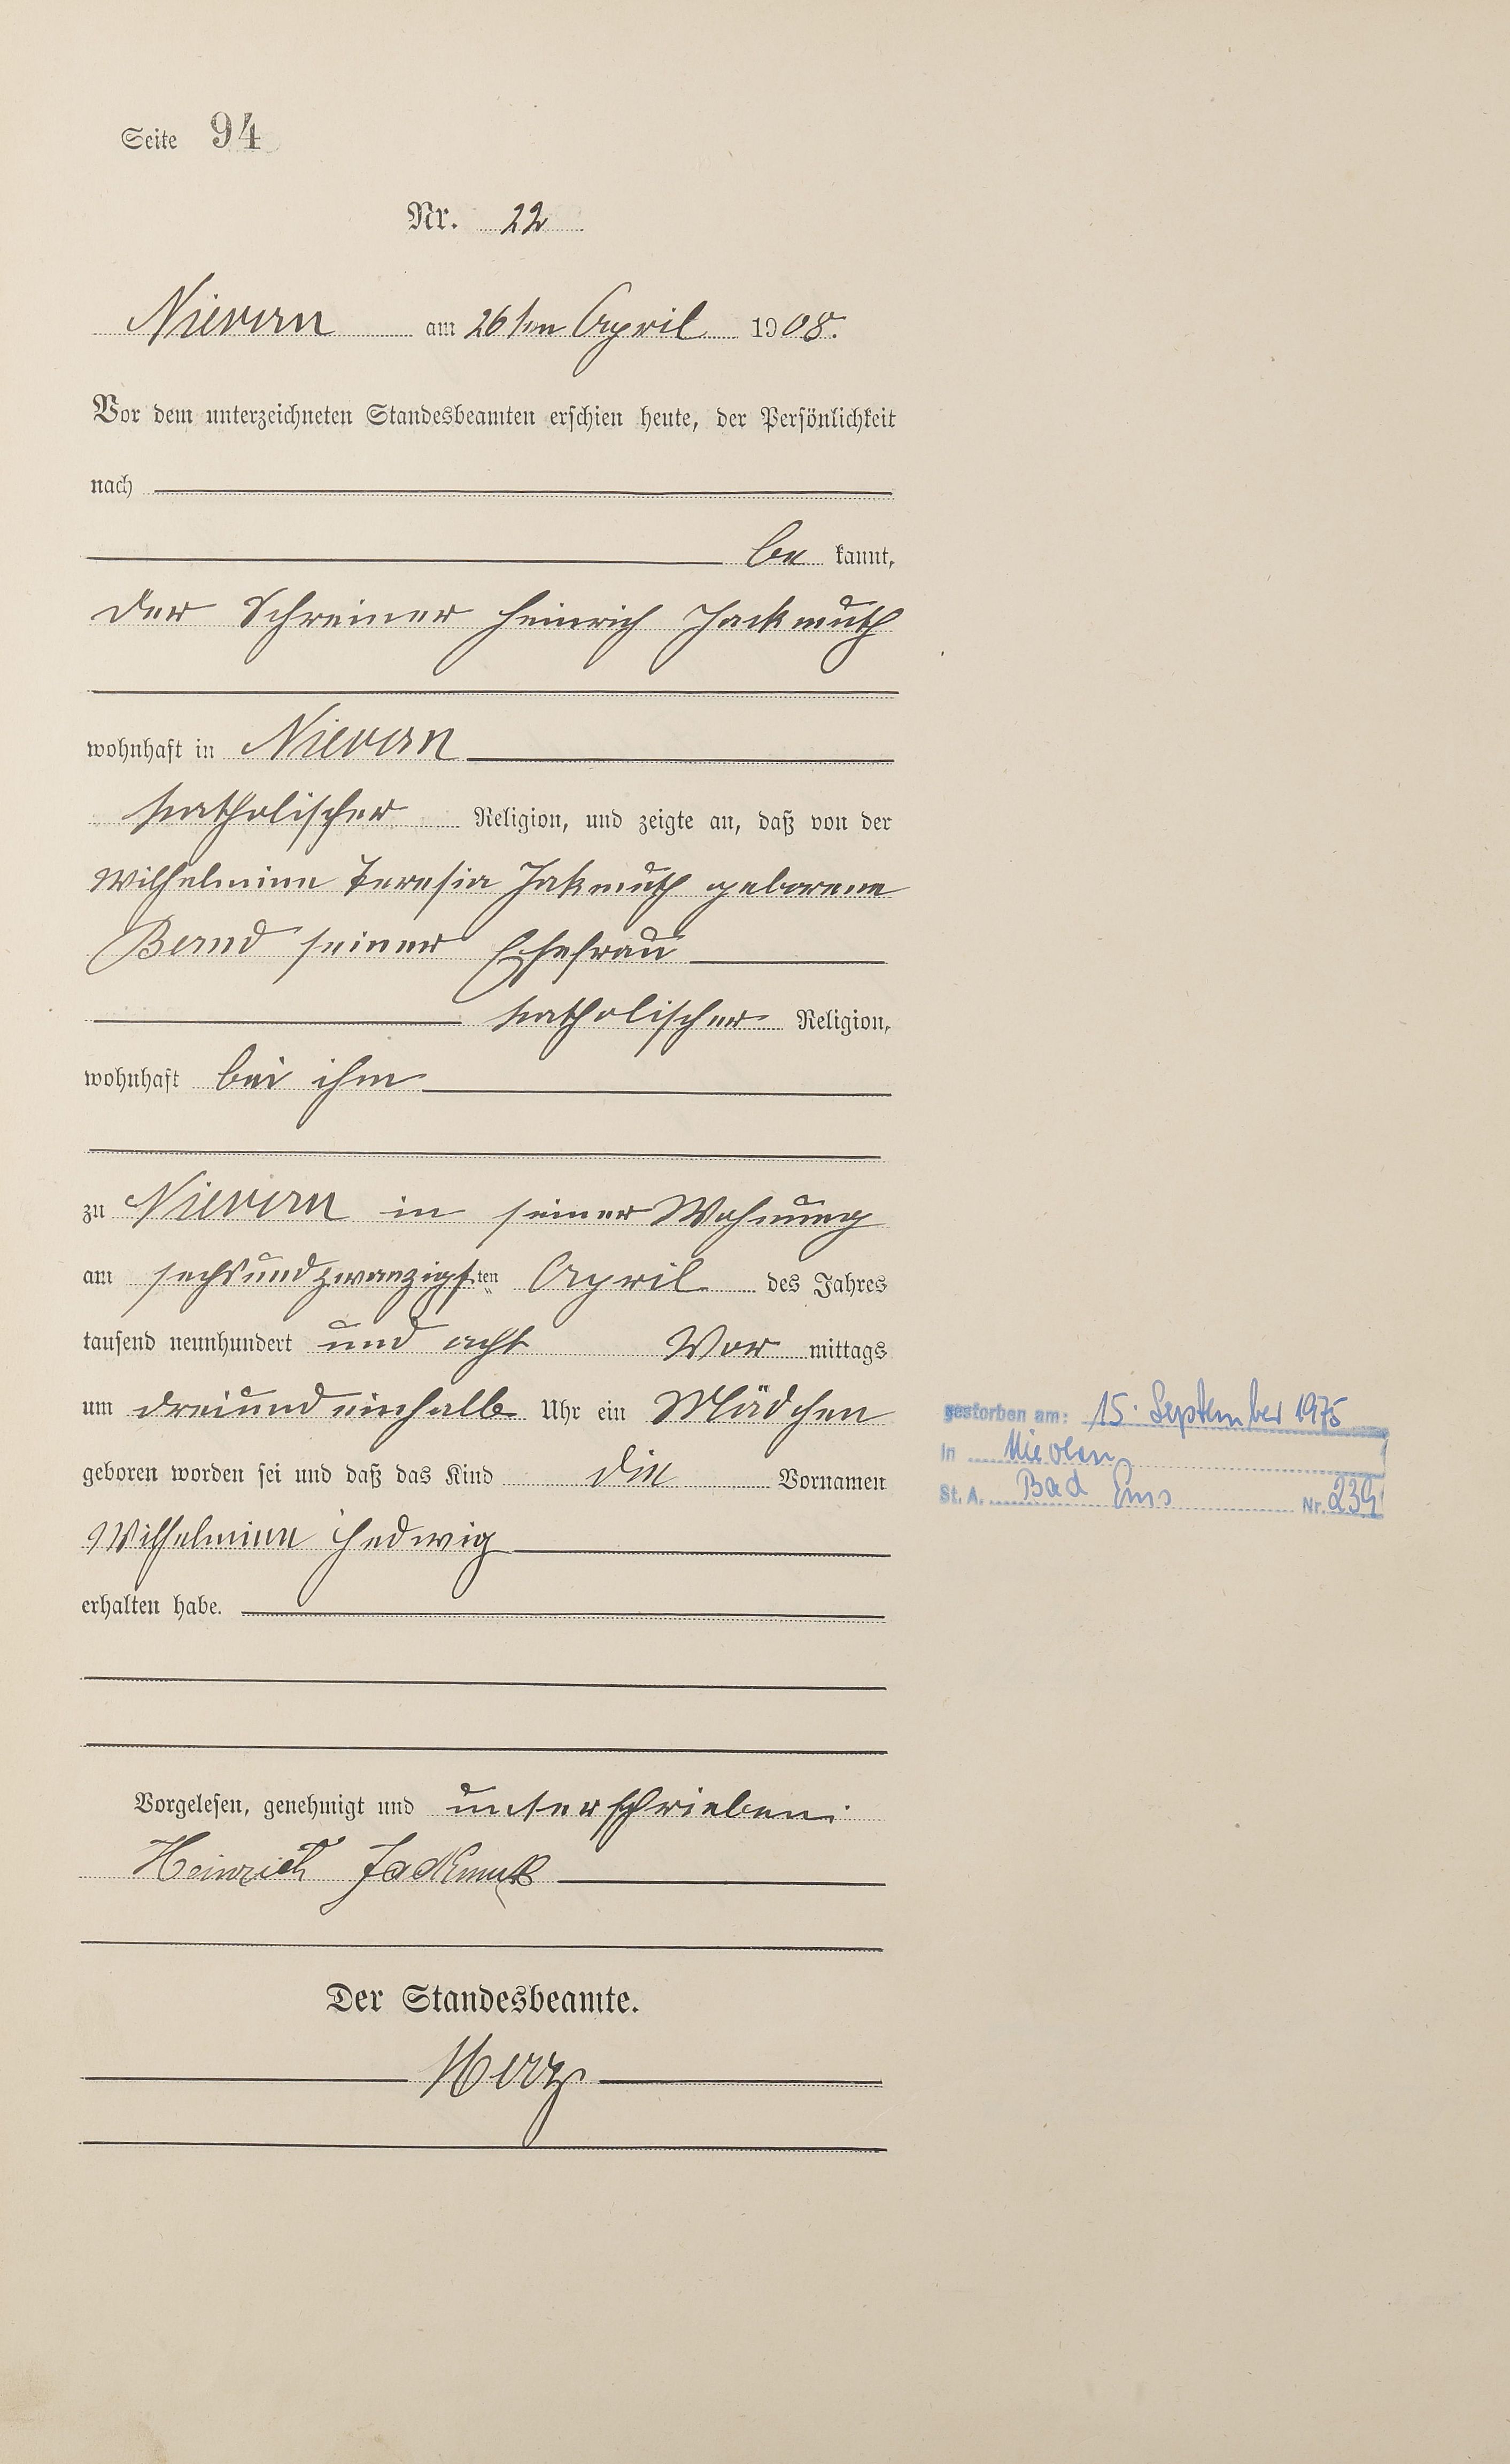 Seite 94
Nr. 22
Nievern am 26ten April 1908.
Vor dem unterzeichneten Standesbeamten erschien heute, der Persönlichkeit
nach
be kannt,
der Schreiner Heinrich Jackmuth
wohnhaft in Nievern
katholischer Religion, und zeigte an, daß von der
Wilhelmine Teresia Jakmuth geborene
Bernd seiner Ehefrau
katholischer Religion,
wohnhaft bei ihm
zu Nievern in seiner Wohnung
am sechsundzwanzigsten April des Jahres
tausend neunhundert und acht Vor mittags
um dreiundeinhalb Uhr ein Mädchen
geboren worden sei und daß das Kind die Vornamen
Wilhelmine Hedwig
erhalten habe.
Vorgelesen, genehmigt und unterschrieben.
Heinrich Jackmuth
Der Standesbeamte.
Herz
gestorben am: 15. September 1975
in Nievern
St. A. Bad Ems Nr. 239